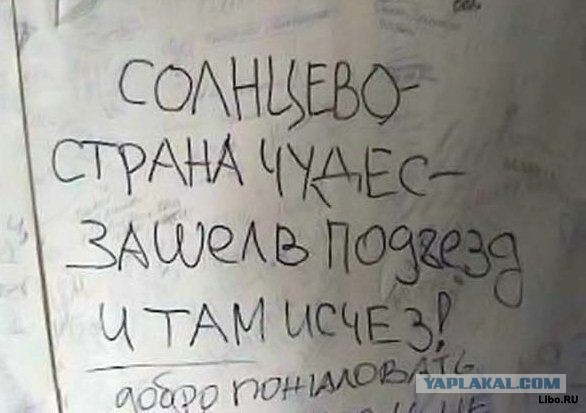 СОЛНЦЕВО-
СТРАНА ЧУДЕС-
ЗАШЕЛ В ПОДЪЕЗД
И ТАМ ИСЧЕЗ!
ДОБРО ПОЖАЛОВАТЬ
YAPLAKAL.COM
Libo.RU